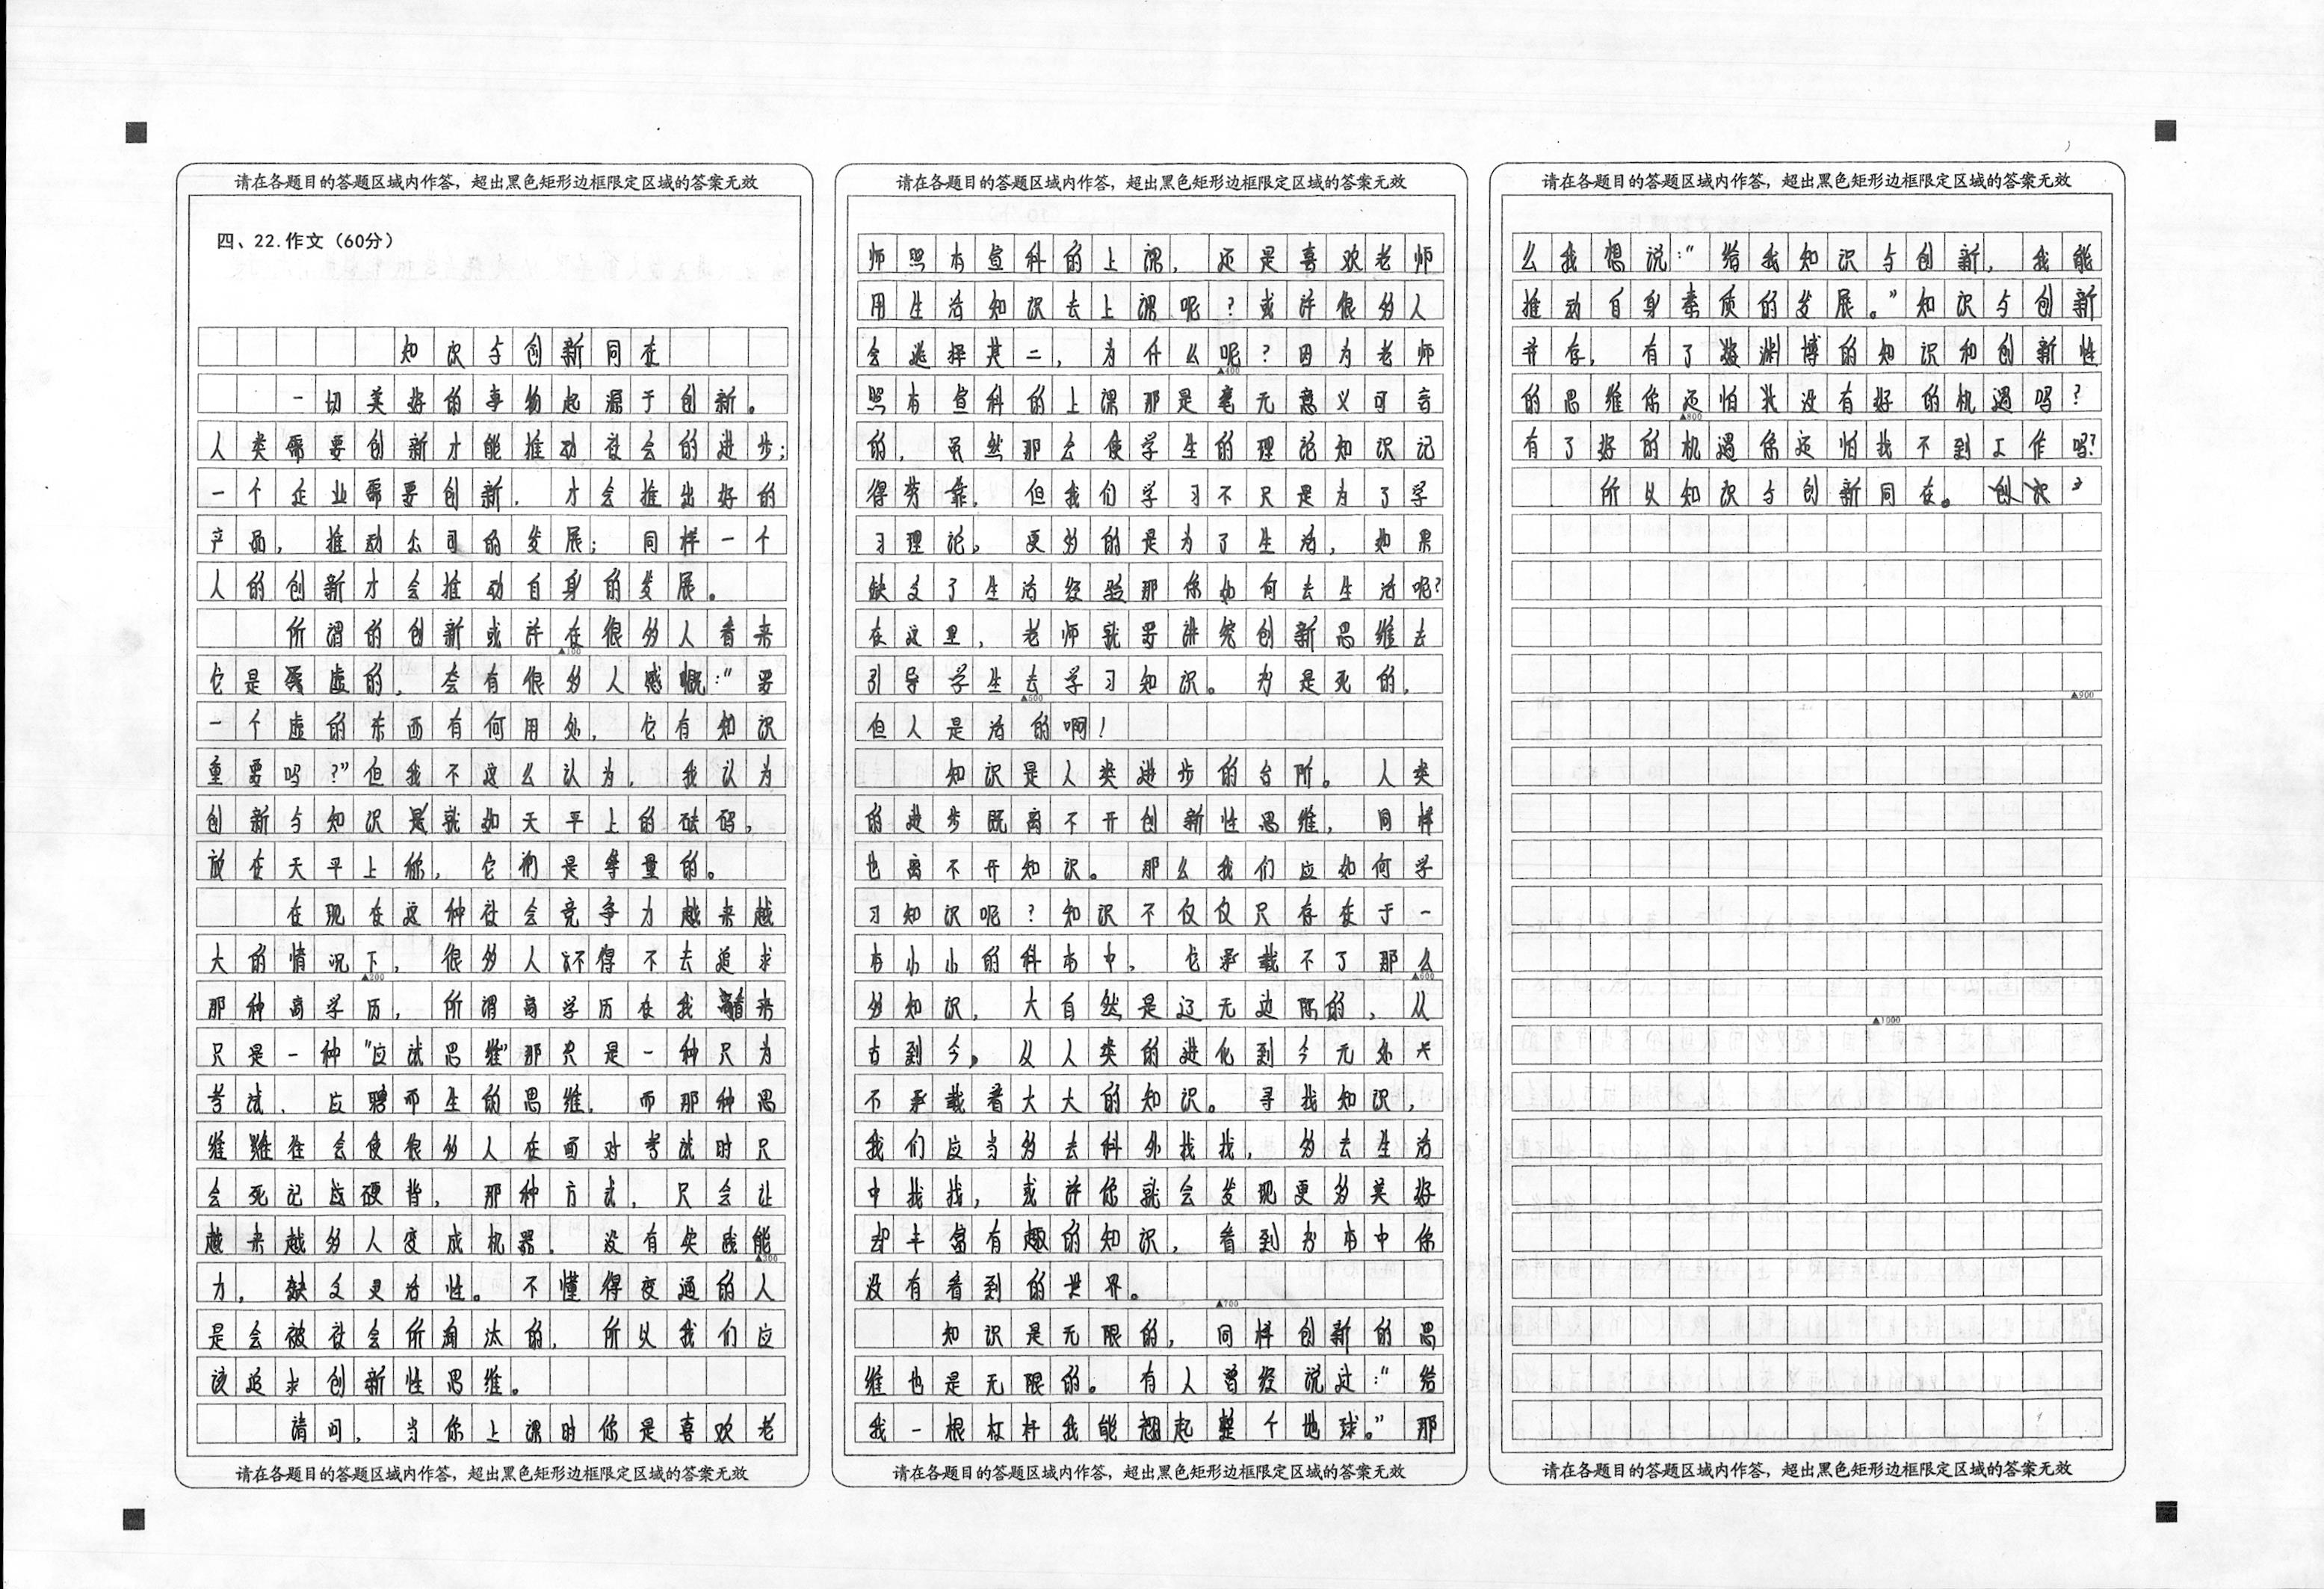 请在各题目的答题区域内作答，超出黑色矩形边框限定区域的答案无效
四、22.作文（60分）
知识与创新同在
一切美好的事物起源于创新。
人类需要创新才能推动社会的进步；
一个企业需要创新，才会推出好的
产品，推动公司的发展；同样一个
人的创新才会推动自身的发展。
所谓的创新或许在很多人看来
▲100
它是虚的，会有很多人感慨：“要
一个虚的东西有何用处，它有知识
重要吗？”但我不这么认为，我认为
创新与知识就如天平上的砝码，
放在天平上称，它们是等量的。
在现在这种社会竞争力越来越
大的情况下，很多人不得不去追求
▲200
那种高学历，所谓高学历在我看来
只是一种“应试思维”那只是一种只为
考试、应聘而生的思维，而那种思
维往会使很多人在面对考试时只
会死记硬背，那种方式，只会让
越来越多人变成机器，没有实践能
▲300
力，缺乏灵活性。不懂得变通的人
是会被社会所淘汰的，所以我们应
该追求创新性思维。
请问，当你上课时你是喜欢老
请在各题目的答题区域内作答，超出黑色矩形边框限定区域的答案无效
请在各题目的答题区域内作答，超出黑色矩形边框限定区域的答案无效
师照本宣科的上课，还是喜欢老师
用生活知识去上课呢？或许很多人
会选择其二，为什么呢？因为老师
▲400
照本宣科的上课那是毫无意义可言
的，虽然那会使学生的理论知识记
得劳靠，但我们学习不只是为了学
习理论，更多的是为了生活，如果
缺乏了生活经验那你如何去生活呢？
在这里，老师就要讲究创新思维去
引导学生去学习知识。书是死的，
▲500
但人是活的啊！
知识是人类进步的台阶。人类
的进步既离不开创新性思维，同样
也离不开知识。那么我们应如何学
习知识呢？知识不仅仅只存在于一
本小小的科本中，它承载不了那么
▲600
多知识，大自然是辽无边际的，从
古到今，从人类的进化到今无处
不承载着大大的知识。寻找知识，
我们应当多去科外找找，多去生活
中找找，或许你就会发现更多美好
却丰富有趣的知识，看到书本中你
没有看到的世界。
▲700
知识是无限的，同样创新的思
维也是无限的。有人曾经说过：“给
我一根杠杆我能翘起整个地球。”那
请在各题目的答题区域内作答，超出黑色矩形边框限定区域的答案无效
请在各题目的答题区域内作答，超出黑色矩形边框限定区域的答案无效
么我想说：“给我知识与创新，我能
推动自身素质的发展。”知识与创新
并存，有了渊博的知识和创新性
的思维你还怕找没有好的机遇吗？
▲800
有了好的机遇你还怕找不到工作吗？
所以知识与创新同在。
▲900
▲1000
请在各题目的答题区域内作答，超出黑色矩形边框限定区域的答案无效